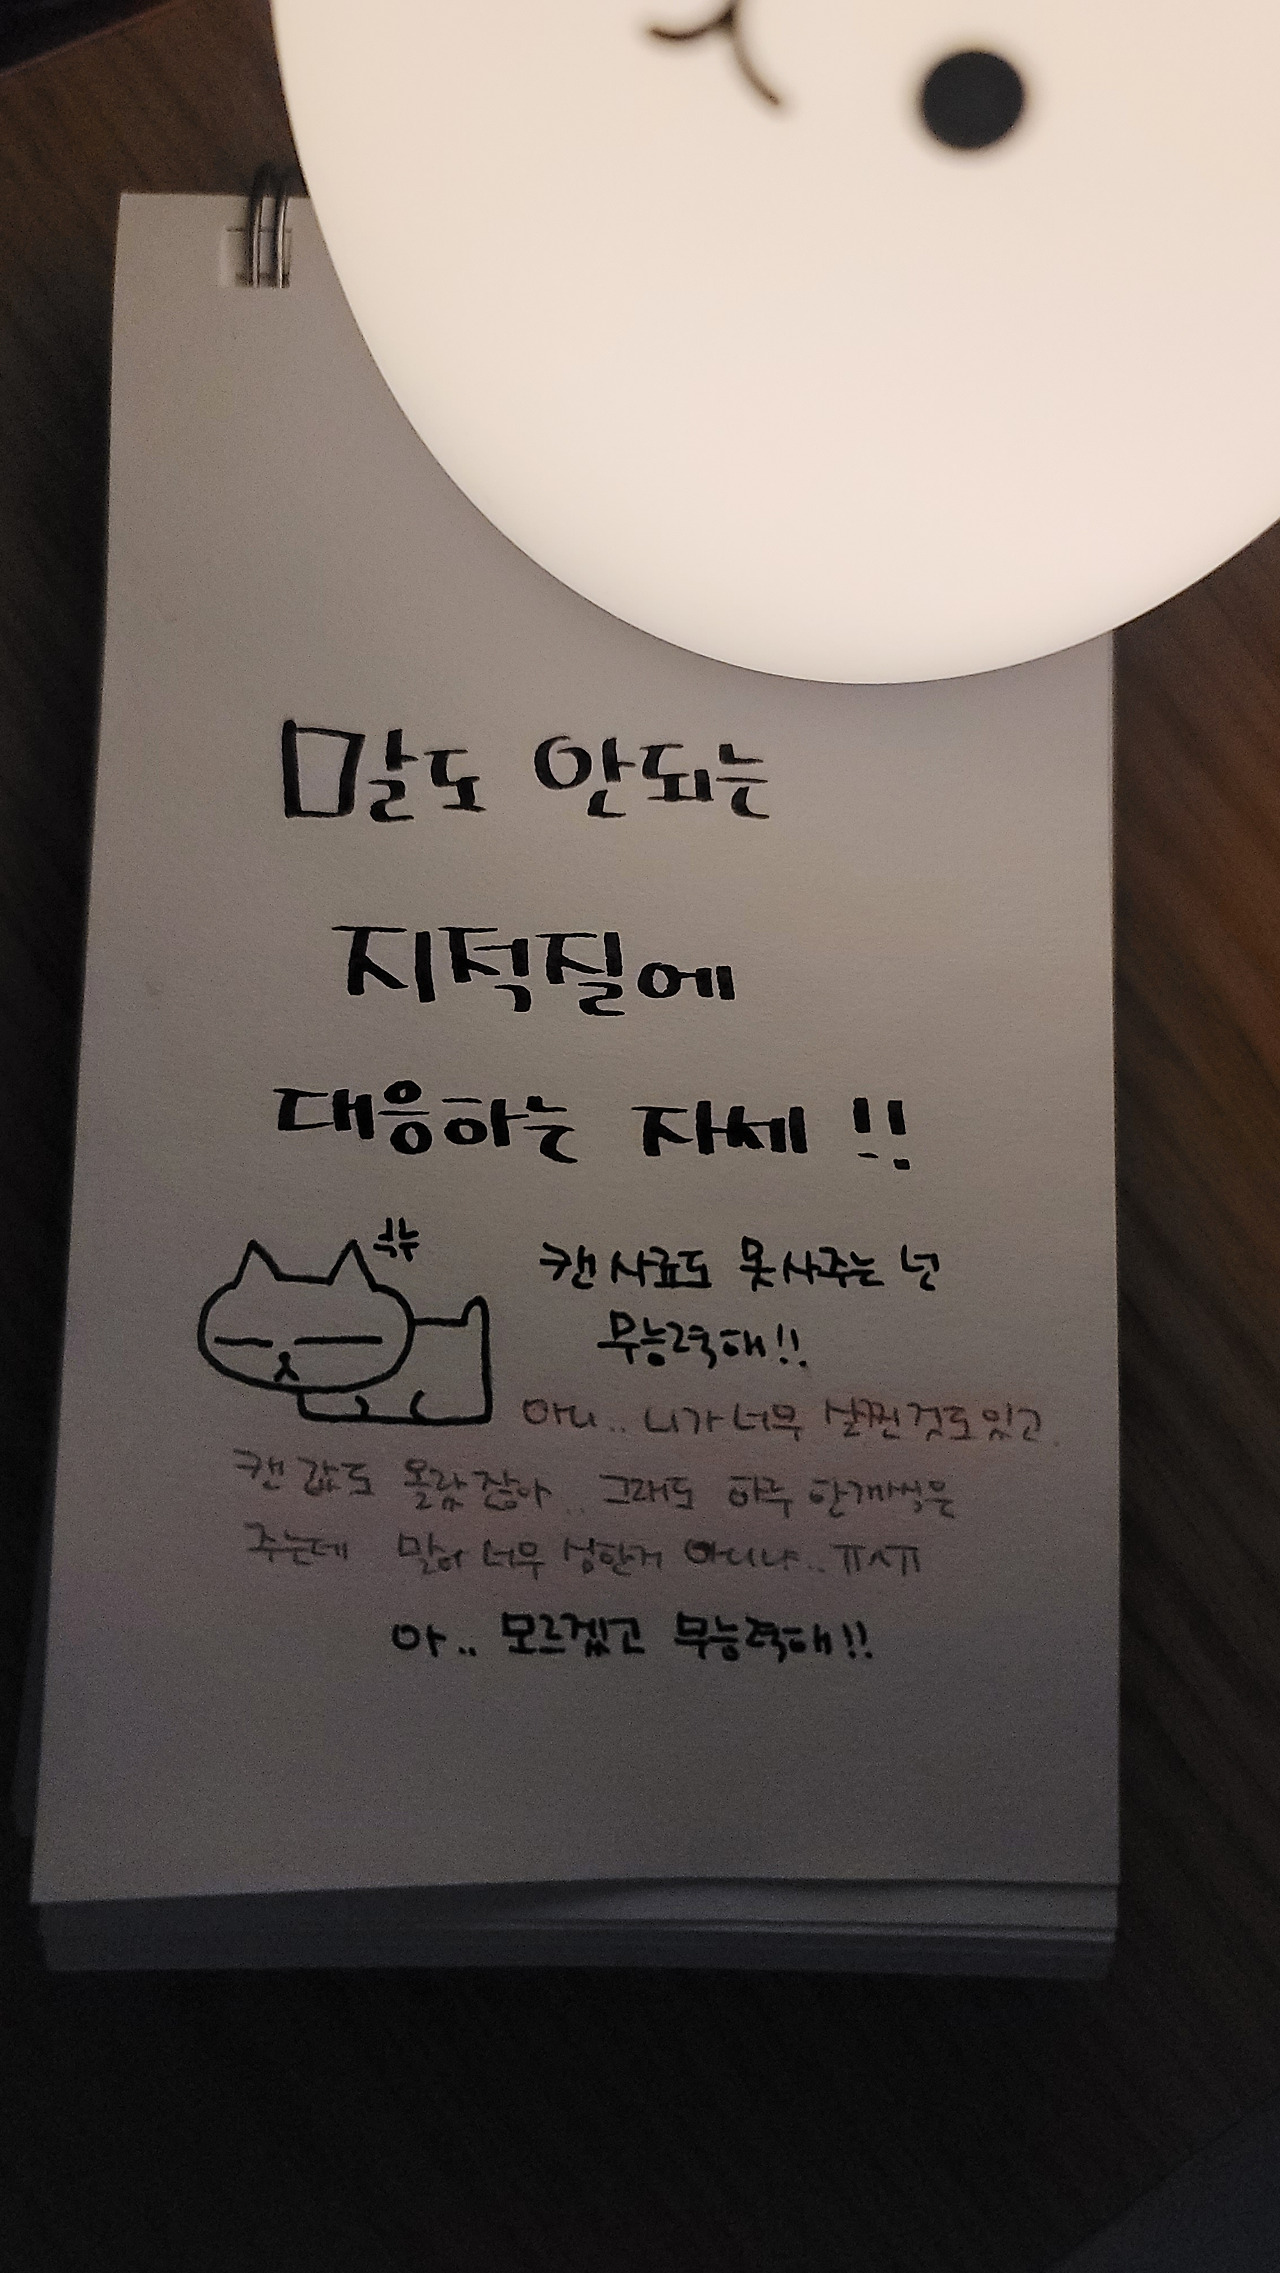 말도 안되는
지적질에
대응하는 자세 !!
캔 사료도 못사주는 넌
무능력해!!
아니.. 니가 너무 살찐것도 있고
캔 값도 올랐잖아.. 그래도 하루 한개씩은
주는데 말이 너무 심한거 아니냐.. ㅠㅅㅠ
아.. 모르겠고 무능력해!!